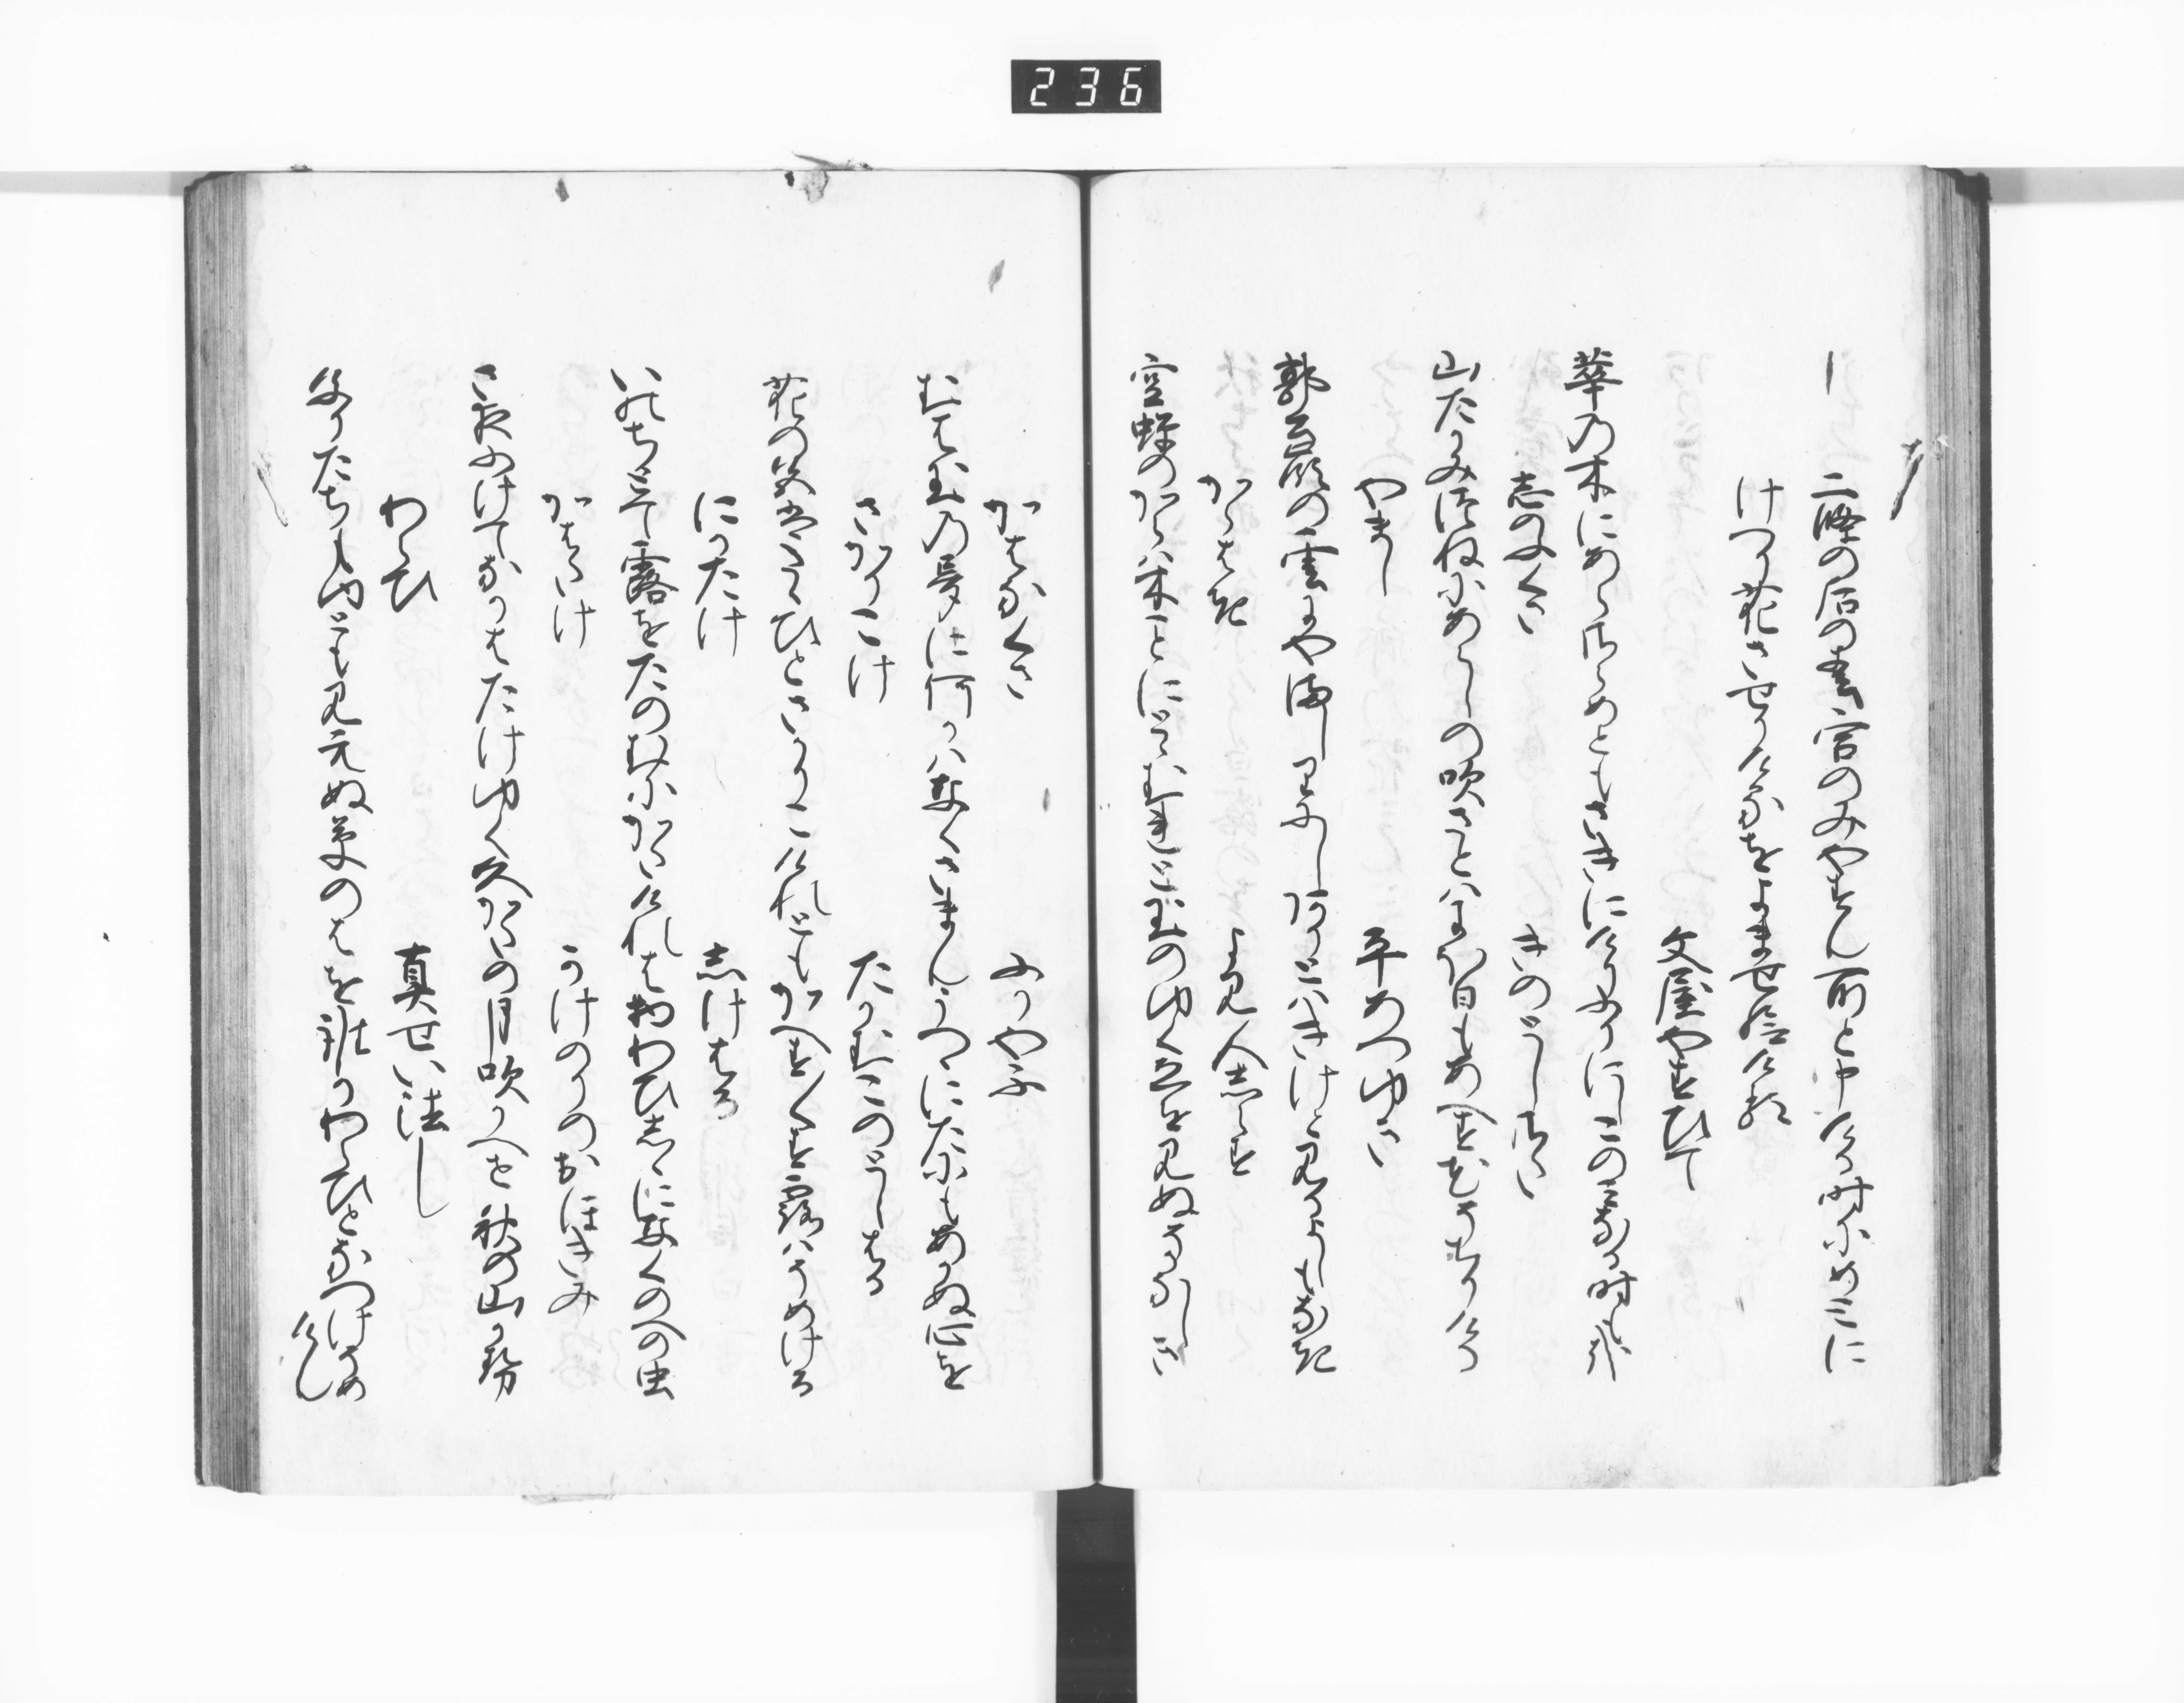 236
二條の后の春宮のみやすん所と申ける時にめとに
けつり花させりけるをよませ給ける
文屋やすひて
華乃木にあらさらめともさきにけりふりにしこのみなる時もかな
志のふくさ　きのとしさた
山たかみつねにあらしの吹さとはにほひもあへす花そちりける
やまし　平あつゆき
郭公峯の雲にやましりにしありとはきけと見るよしもなき
からはき　よみ人志らす
空蝉のからは木ことにとゝむれと玉のゆくゑを見ぬそかなしき
かはなくさ　ふかやふ
むは玉乃夢に何かはなくさまんうつゝにたにもあかぬ心を
さかりこけ　たかむこのとしはる
花の色はたゝひとさかりこけれともかへす〳〵そ露はそめける
にかたけ　志けはる
いのちとて露をたのむにかたけれは物わひしらに鳴のへの虫
かはたけ　かけのりのおほきみ
さ夜ふけてなかはたけゆく久かたの月吹かへせ秋の山かせ
わらひ　真せい法し
煙たちもゆとも見えぬ草のはを誰かわらひとなつけそめ
けん